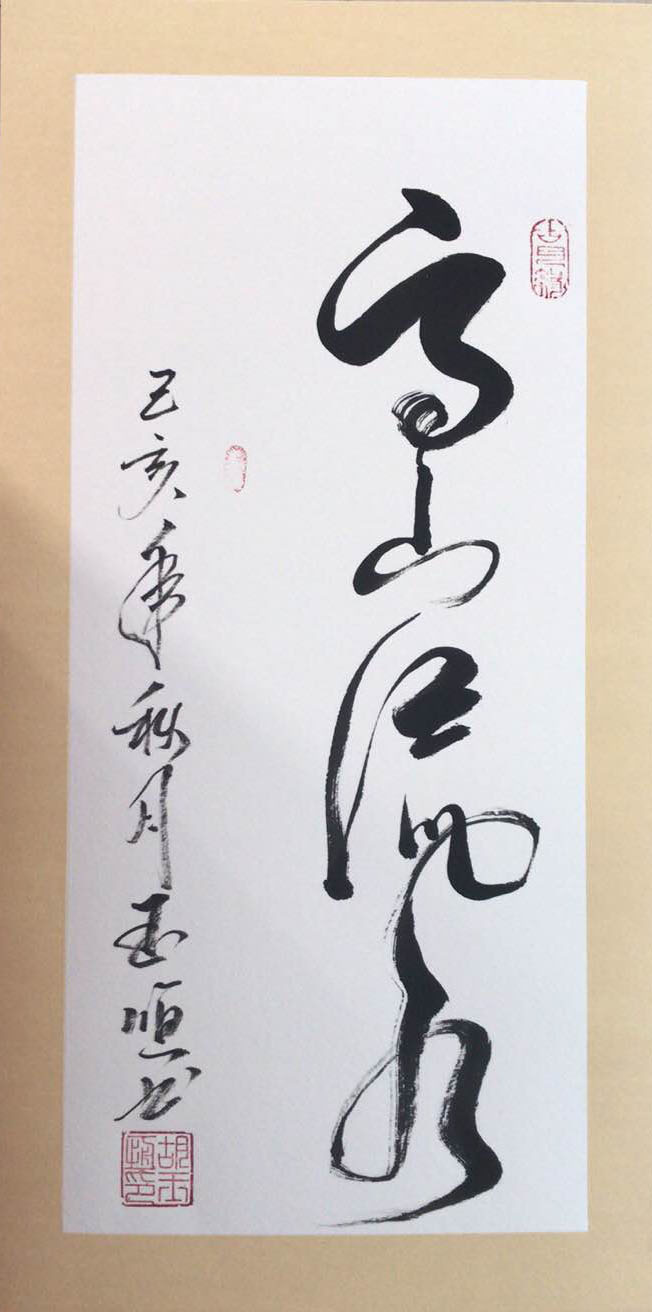 高山流水
己亥年秋月玉顺书
胡玉顺印